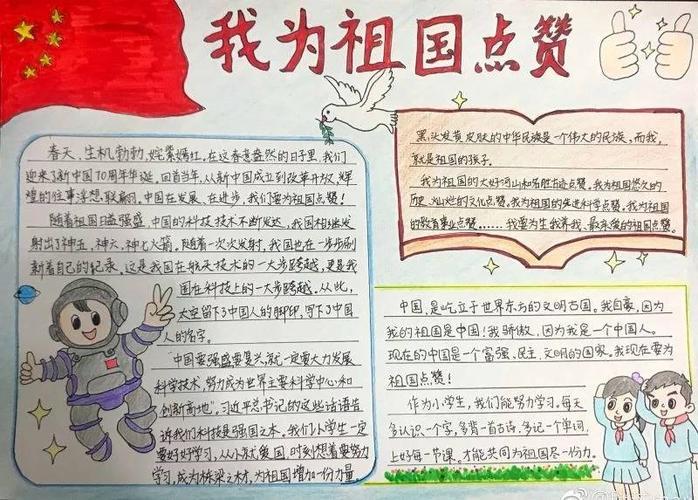 我为祖国点赞
春天,生机勃勃,姹紫嫣红。在这春意盎然的日子里,我们
迎来了新中国70周年华诞。回首当年,从新中国成立到改革开放,辉
煌的往事浮想联翩,中国在发展,在进步,我们要为祖国点赞!
随着祖国日益强盛,中国的科技技术不断发达,我国相继发
射出了神五,神六,神七火箭。随着一次次发射,我国也在一步步刷
新着自己的纪录。这是我国在航天技术的一大步跨越,更是我
国在科技上的一大步跨越。从此,
太空留下了中国人的脚印,写下了中国
人的名字。
"中国要强盛要复兴,就一定要大力发展
科学技术,努力成为世界主要科学中心和
创新高地",习近平总书记的这些话语告
诉我们科技是强国之本。我们小学生一定
要好好学习,从小就爱国,时刻想着要努力
学习,成为栋梁之材,为祖国增加一份力量
黑头发黄皮肤的中华民族是一个伟大的民族。而我,
就是祖国的孩子。
我为祖国的大好河山和名胜古迹点赞。我为祖国悠久的
历史,灿烂的文化点赞。我为祖国的先进科学点赞。我为祖国
的教育事业点赞……我要为生我养我、最亲爱的祖国点赞。
中国,是屹立于世界东方的文明古国。我自豪,因为
我的祖国是中国!我骄傲,因为我是一个中国人。
现在的中国是一个富强、民主、文明的国家。我现在要为
祖国点赞!
作为小学生,我们能努力学习。每天
多认识一个字,多背一首古诗,多记一个单词,
上好每一节课,才能共同为祖国尽一份力。